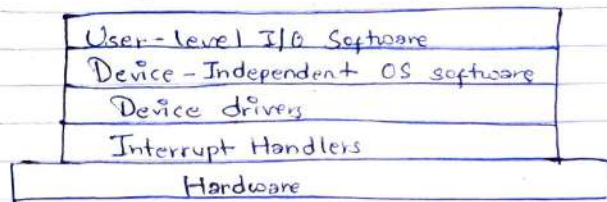 User-level I/O Software
Device-Independent OS software
Device drivers
Interrupt Handlers
Hardware